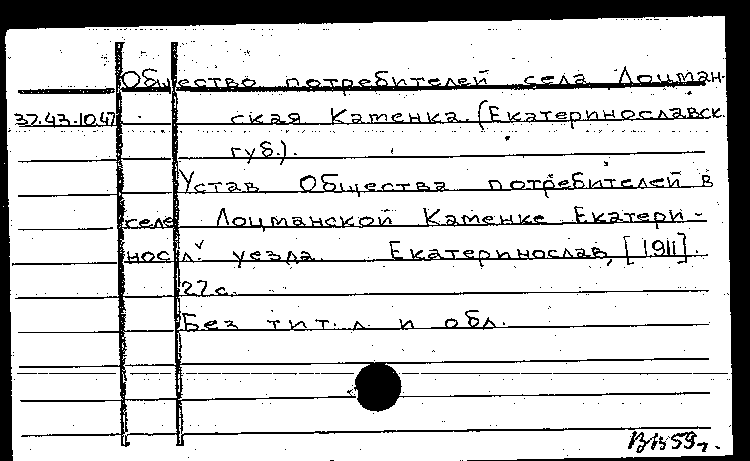 Общество потребителей села Лоцман-
37.43.1047 ская Каменка. (Екатеринославск.
губ.).
Устав Общества потребителей в
селе Лоцманской Каменке Екатери-
носл. уезда. Екатеринослав, [1911].
22 с.
Без тит. л. и обл.